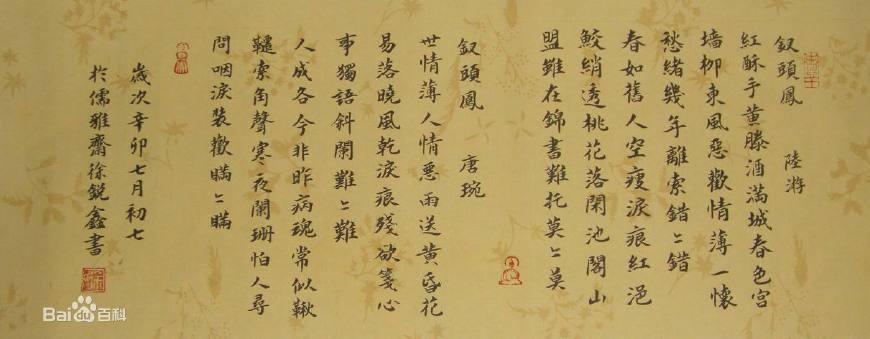 釵頭鳳 陸游
紅酥手黄滕酒滿城春色宮
墙柳東風惡歡情薄一懷
愁緒幾年離索錯〻錯
春如舊人空瘦淚痕紅浥
鮫綃透桃花落閑池閣山
盟雖在錦書難托莫〻莫
釵頭鳳 唐琬
世情薄人情惡雨送黄昏花
易落曉風乾淚痕殘欲箋心
事獨語斜闌難〻難
人成各今非昨病魂常似鞦
韆索角聲寒夜闌珊怕人尋
問咽淚裝歡瞞〻瞞
歲次辛卯七月初七
於儒雅齋徐銳鑫書
Bai百科